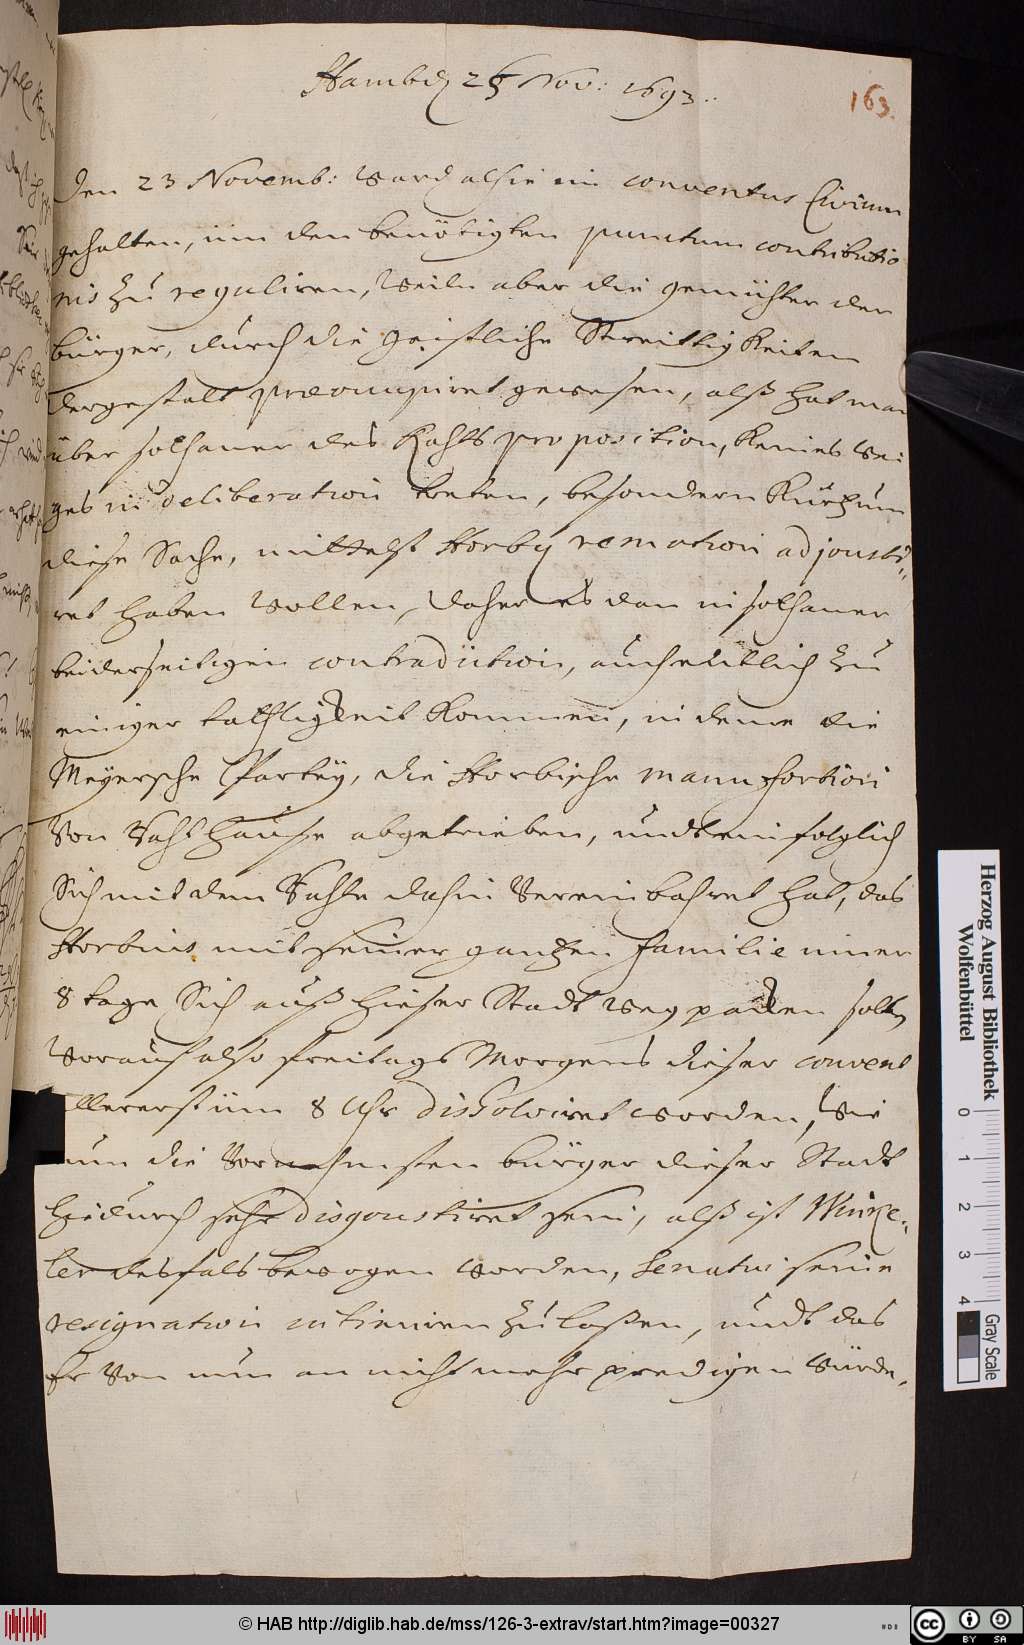 Hambg 25 Nov: 1693.
163.
Den 23 Novemb: ward alhie ein conventus Civium
gehalten, um den benötigten punctum contributio
nis zu reguliren, Weiln aber die gemühter der
bürger, durch die Geistliche Streittigkeiten
dergestalt præoccupiret gewesen, alß hat man
über solhaner des Rahts proposition, keines we
ges in deliberation treten, besondern kurtzum
diese Sache, mittelst Horby remotion adjousti-
ret haben wollen, daher es dan in solhaner
beiderseitigen contradiction, auch endtlich zu
einiger tathligkeit kommen, in deme die
Meyersche Partey, die Horbische manu fortiori
Von Rahthause abgetrieben, undt einfolglich
Sich mit dem Rahte dahin Vereinbahret hat, das
Horbius mit seiner gantzen familie inner
8 tage Sich auß hieser Stadt weg packen solte,
Worauf also freitags Morgens dieser convent
allererst um 8 Uhr dissolviret worden, Wie
nun die Vornehmsten bürger dieser Stadt
hiedurch sehr disgoustiret sein, alß ist Wincke-
ler desfals bewogen worden, Senatui seine
resignation intimiren zu laßen, undt das
Er Von nun an nicht mehr predigen würde.
Herzog August Bibliothek
Wolfenbüttel
0 1 2 3 4
Gray Scale
© HAB http://diglib.hab.de/mss/126-3-extrav/start.htm?image=00327
cc BY SA